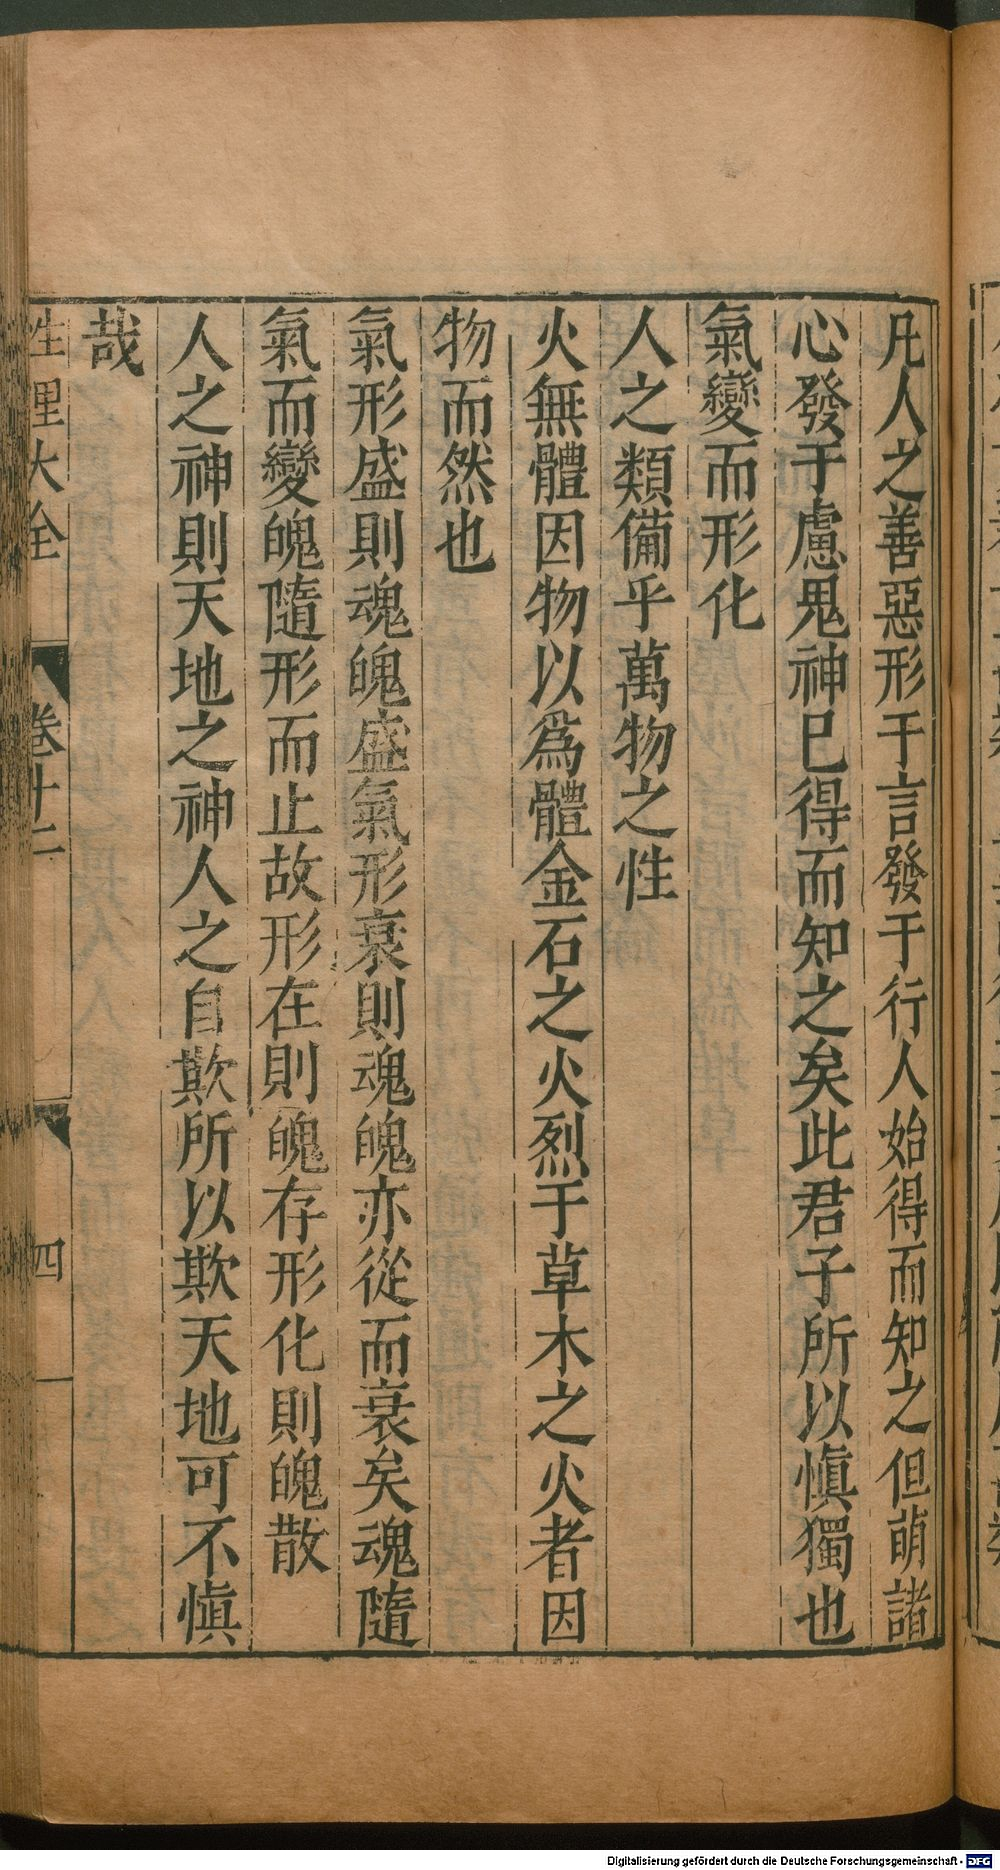 凡人之善惡形于言發于行人始得而知之但萌諸
心發于慮鬼神已得而知之矣此君子所以愼獨也
氣變而形化
人之類備乎萬物之性
火無體因物以爲體金石之火烈于草木之火者因
物而然也
氣形盛則魂魄盛氣形衰則魂魄亦從而衰矣魂隨
氣而變魄隨形而止故形在則魄存形化則魄散
人之神則天地之神人之自欺所以欺天地可不愼
哉
性理大全 卷十二 四
Digitalisierung gefördert durch die Deutsche Forschungsgemeinschaft - DFG